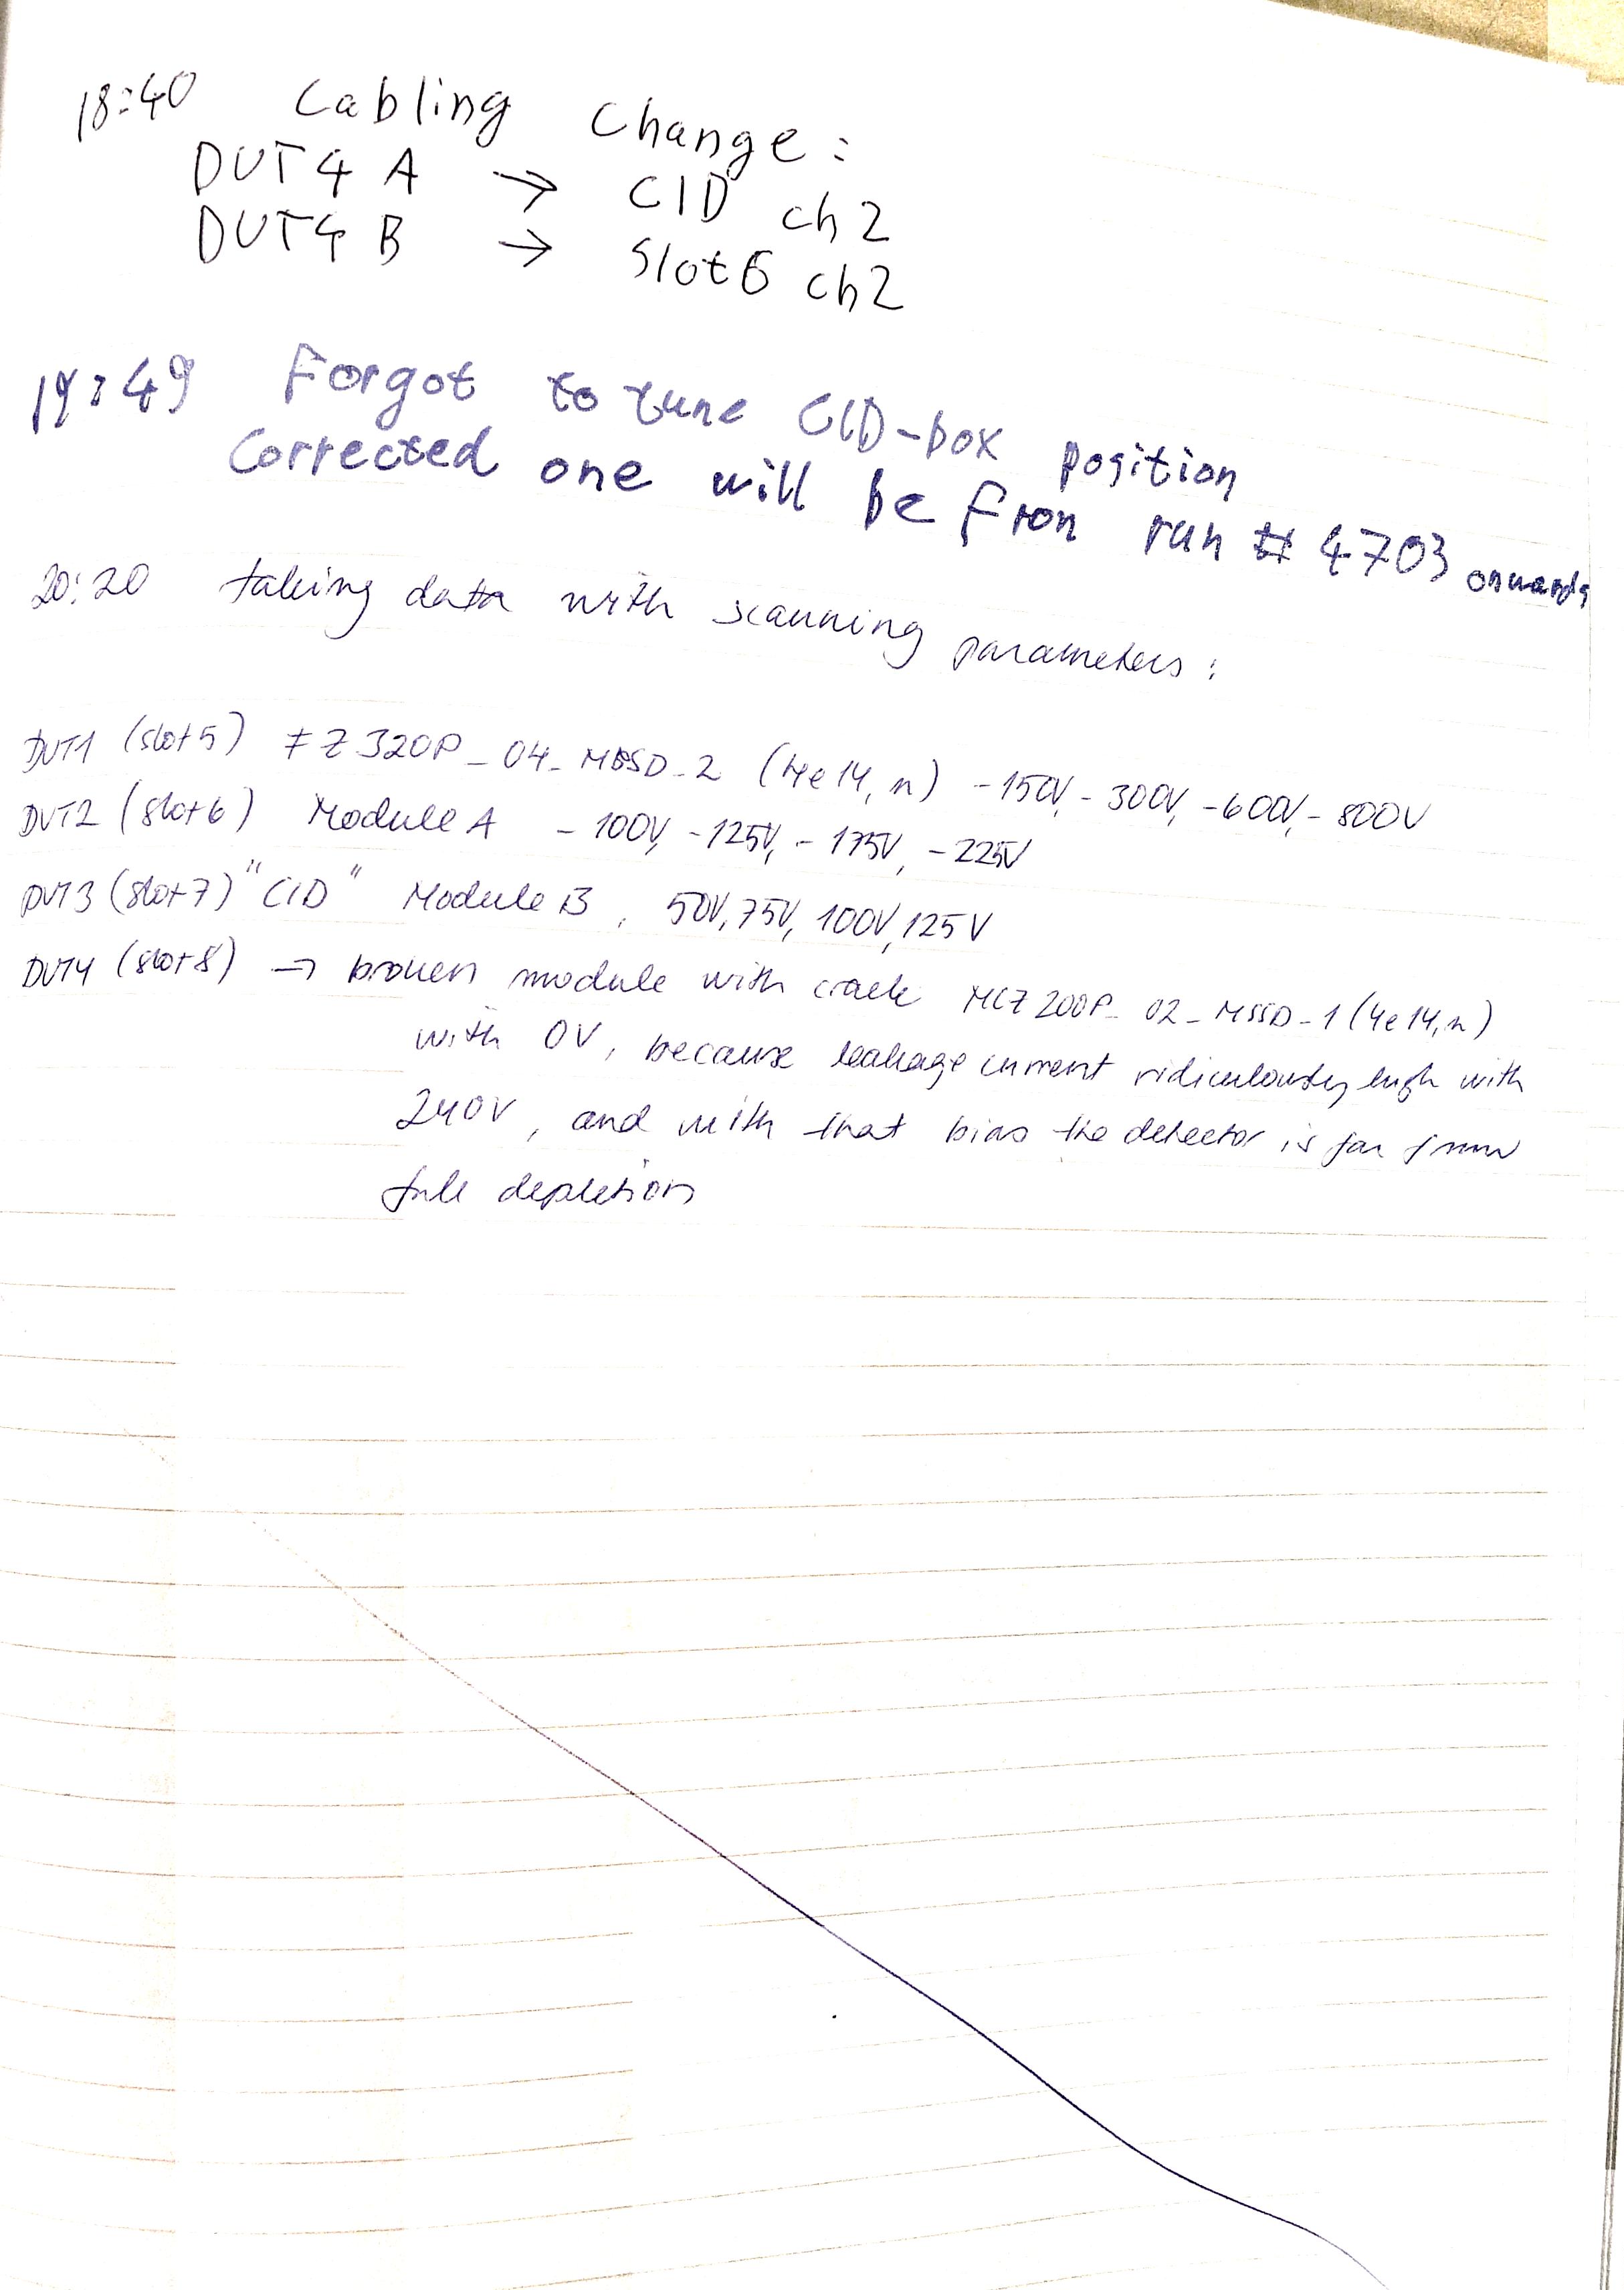 18:40 Cabling Change:
DUT4 A → CID ch2
DUT4 B → Slot6 ch2
19:49 Forgot to tune CID-box position
Corrected one will be from run # 4703 onwards
20:20 taking data with scanning parameters:
DUT1 (slot5) FZ320P_04_MSSD_2 (4e14, n) -150V, -300V, -600V, -800V
DUT2 (slot6) Module A -100V, -125V, -175V, -225V
DUT3 (slot7) "CID" Module B, 50V, 75V, 100V, 125V
DUT4 (slot8) → broken module with crack MCZ200P_02_MSSD_1 (4e14, n)
with 0V, because leakage current ridiculously high with
240V, and with that bias the detector is far from
full depletion